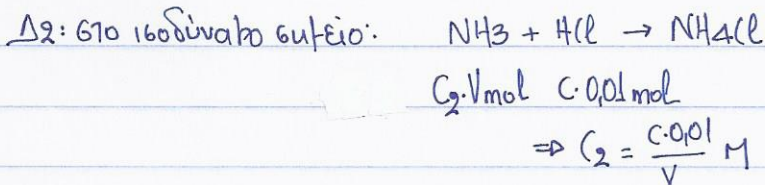 Δ2: στο ισοδύναμο σημείο: NH3 + HCl → NH4Cl
C2·Vmol C·0,01mol
⇒ C2 = C·0,01 / V M